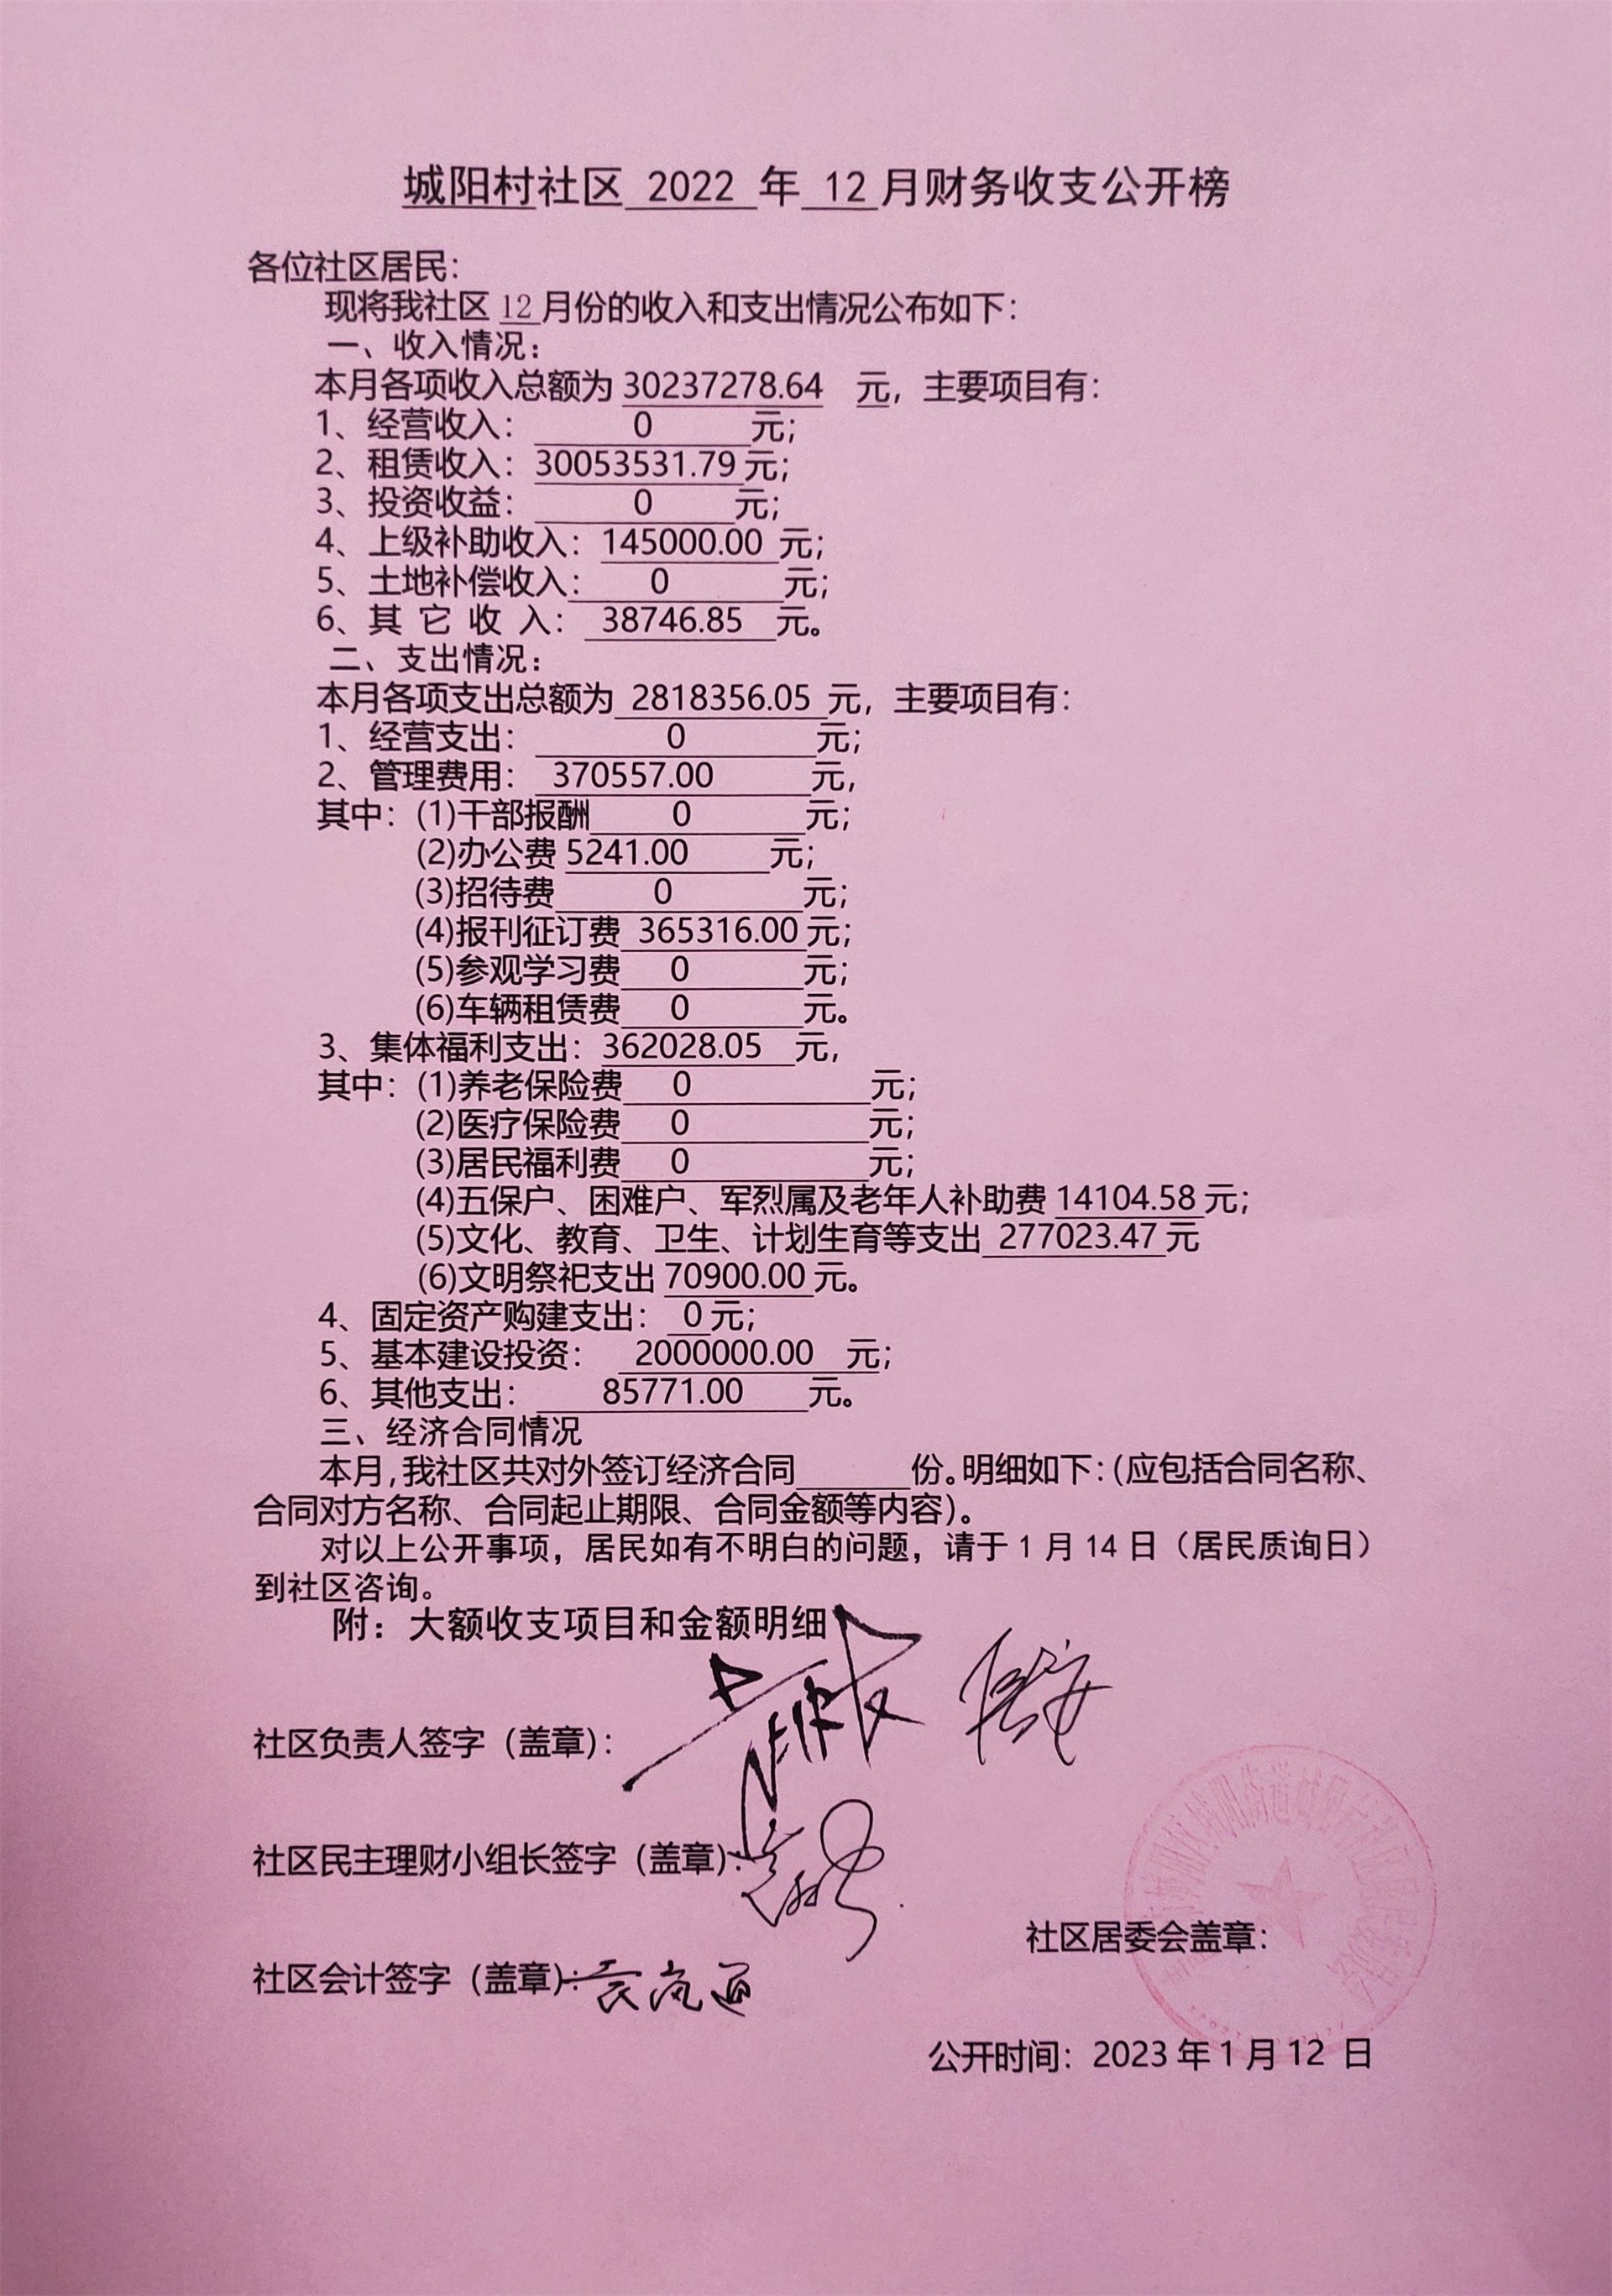 城阳村社区 2022 年 12 月财务收支公开榜
各位社区居民：
现将我社区 12 月份的收入和支出情况公布如下：
一、收入情况：
本月各项收入总额为 30237278.64 元，主要项目有：
1、经营收入： 0 元；
2、租赁收入：30053531.79 元；
3、投资收益： 0 元；
4、上级补助收入：145000.00 元；
5、土地补偿收入： 0 元；
6、其 它 收 入： 38746.85 元。
二、支出情况：
本月各项支出总额为 2818356.05 元，主要项目有：
1、经营支出： 0 元；
2、管理费用： 370557.00 元，
其中：(1)干部报酬 0 元；
(2)办公费 5241.00 元；
(3)招待费 0 元；
(4)报刊征订费 365316.00 元；
(5)参观学习费 0 元；
(6)车辆租赁费 0 元。
3、集体福利支出：362028.05 元，
其中：(1)养老保险费 0 元；
(2)医疗保险费 0 元；
(3)居民福利费 0 元；
(4)五保户、困难户、军烈属及老年人补助费 14104.58 元；
(5)文化、教育、卫生、计划生育等支出 277023.47 元
(6)文明祭祀支出 70900.00 元。
4、固定资产购建支出： 0 元；
5、基本建设投资： 2000000.00 元；
6、其他支出： 85771.00 元。
三、经济合同情况
本月，我社区共对外签订经济合同______份。明细如下：（应包括合同名称、
合同对方名称、合同起止期限、合同金额等内容）。
对以上公开事项，居民如有不明白的问题，请于 1 月 14 日（居民质询日）
到社区咨询。
附：大额收支项目和金额明细
社区负责人签字（盖章）：
社区民主理财小组长签字（盖章）：
社区居委会盖章：
社区会计签字（盖章）：
公开时间：2023 年 1 月 12 日